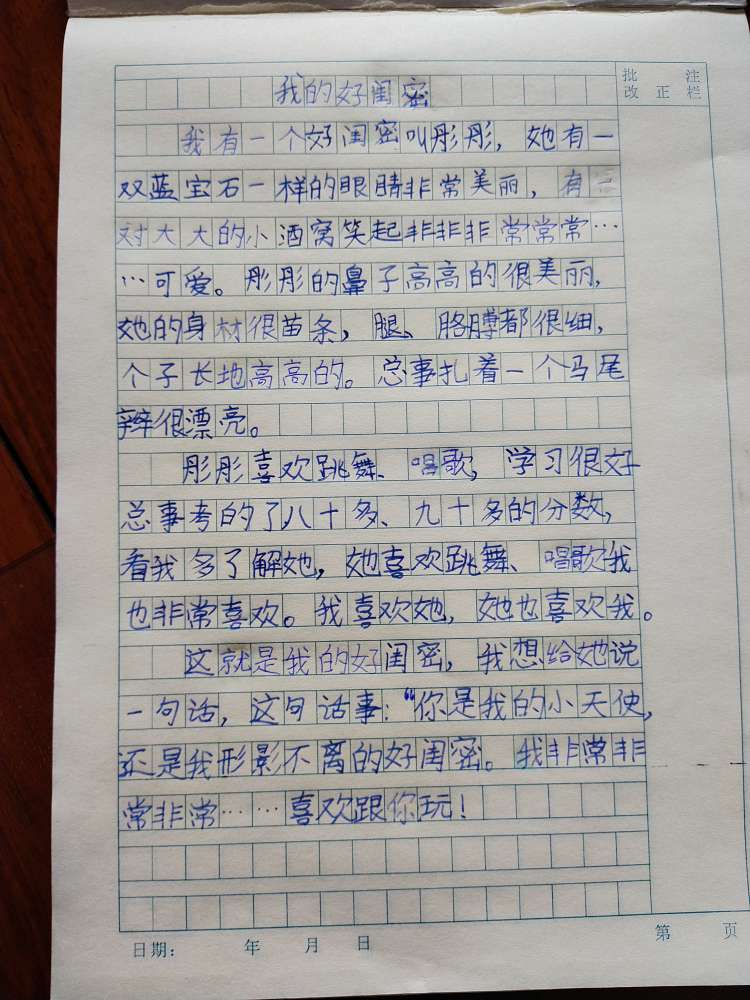 批 注
改 正 栏
我的好闺密
我有一个好闺密叫彤彤，她有一
双蓝宝石一样的眼睛非常美丽，有一
对大大的小酒窝笑起非非非常常常…
…可爱。彤彤的鼻子高高的很美丽，
她的身材很苗条，腿、胳膊都很细，
个子长地高高的。总事扎着一个马尾
辫很漂亮。
彤彤喜欢跳舞、唱歌，学习很好
总事考的了八十多、九十多的分数，
看我多了解她，她喜欢跳舞、唱歌我
也非常喜欢。我喜欢她，她也喜欢我。
这就是我的好闺密，我想给她说
一句话，这句话事：“你是我的小天使，
还是我形影不离的好闺密。我非常非
常非常……喜欢跟你玩！
日期： 年 月 日
第 页